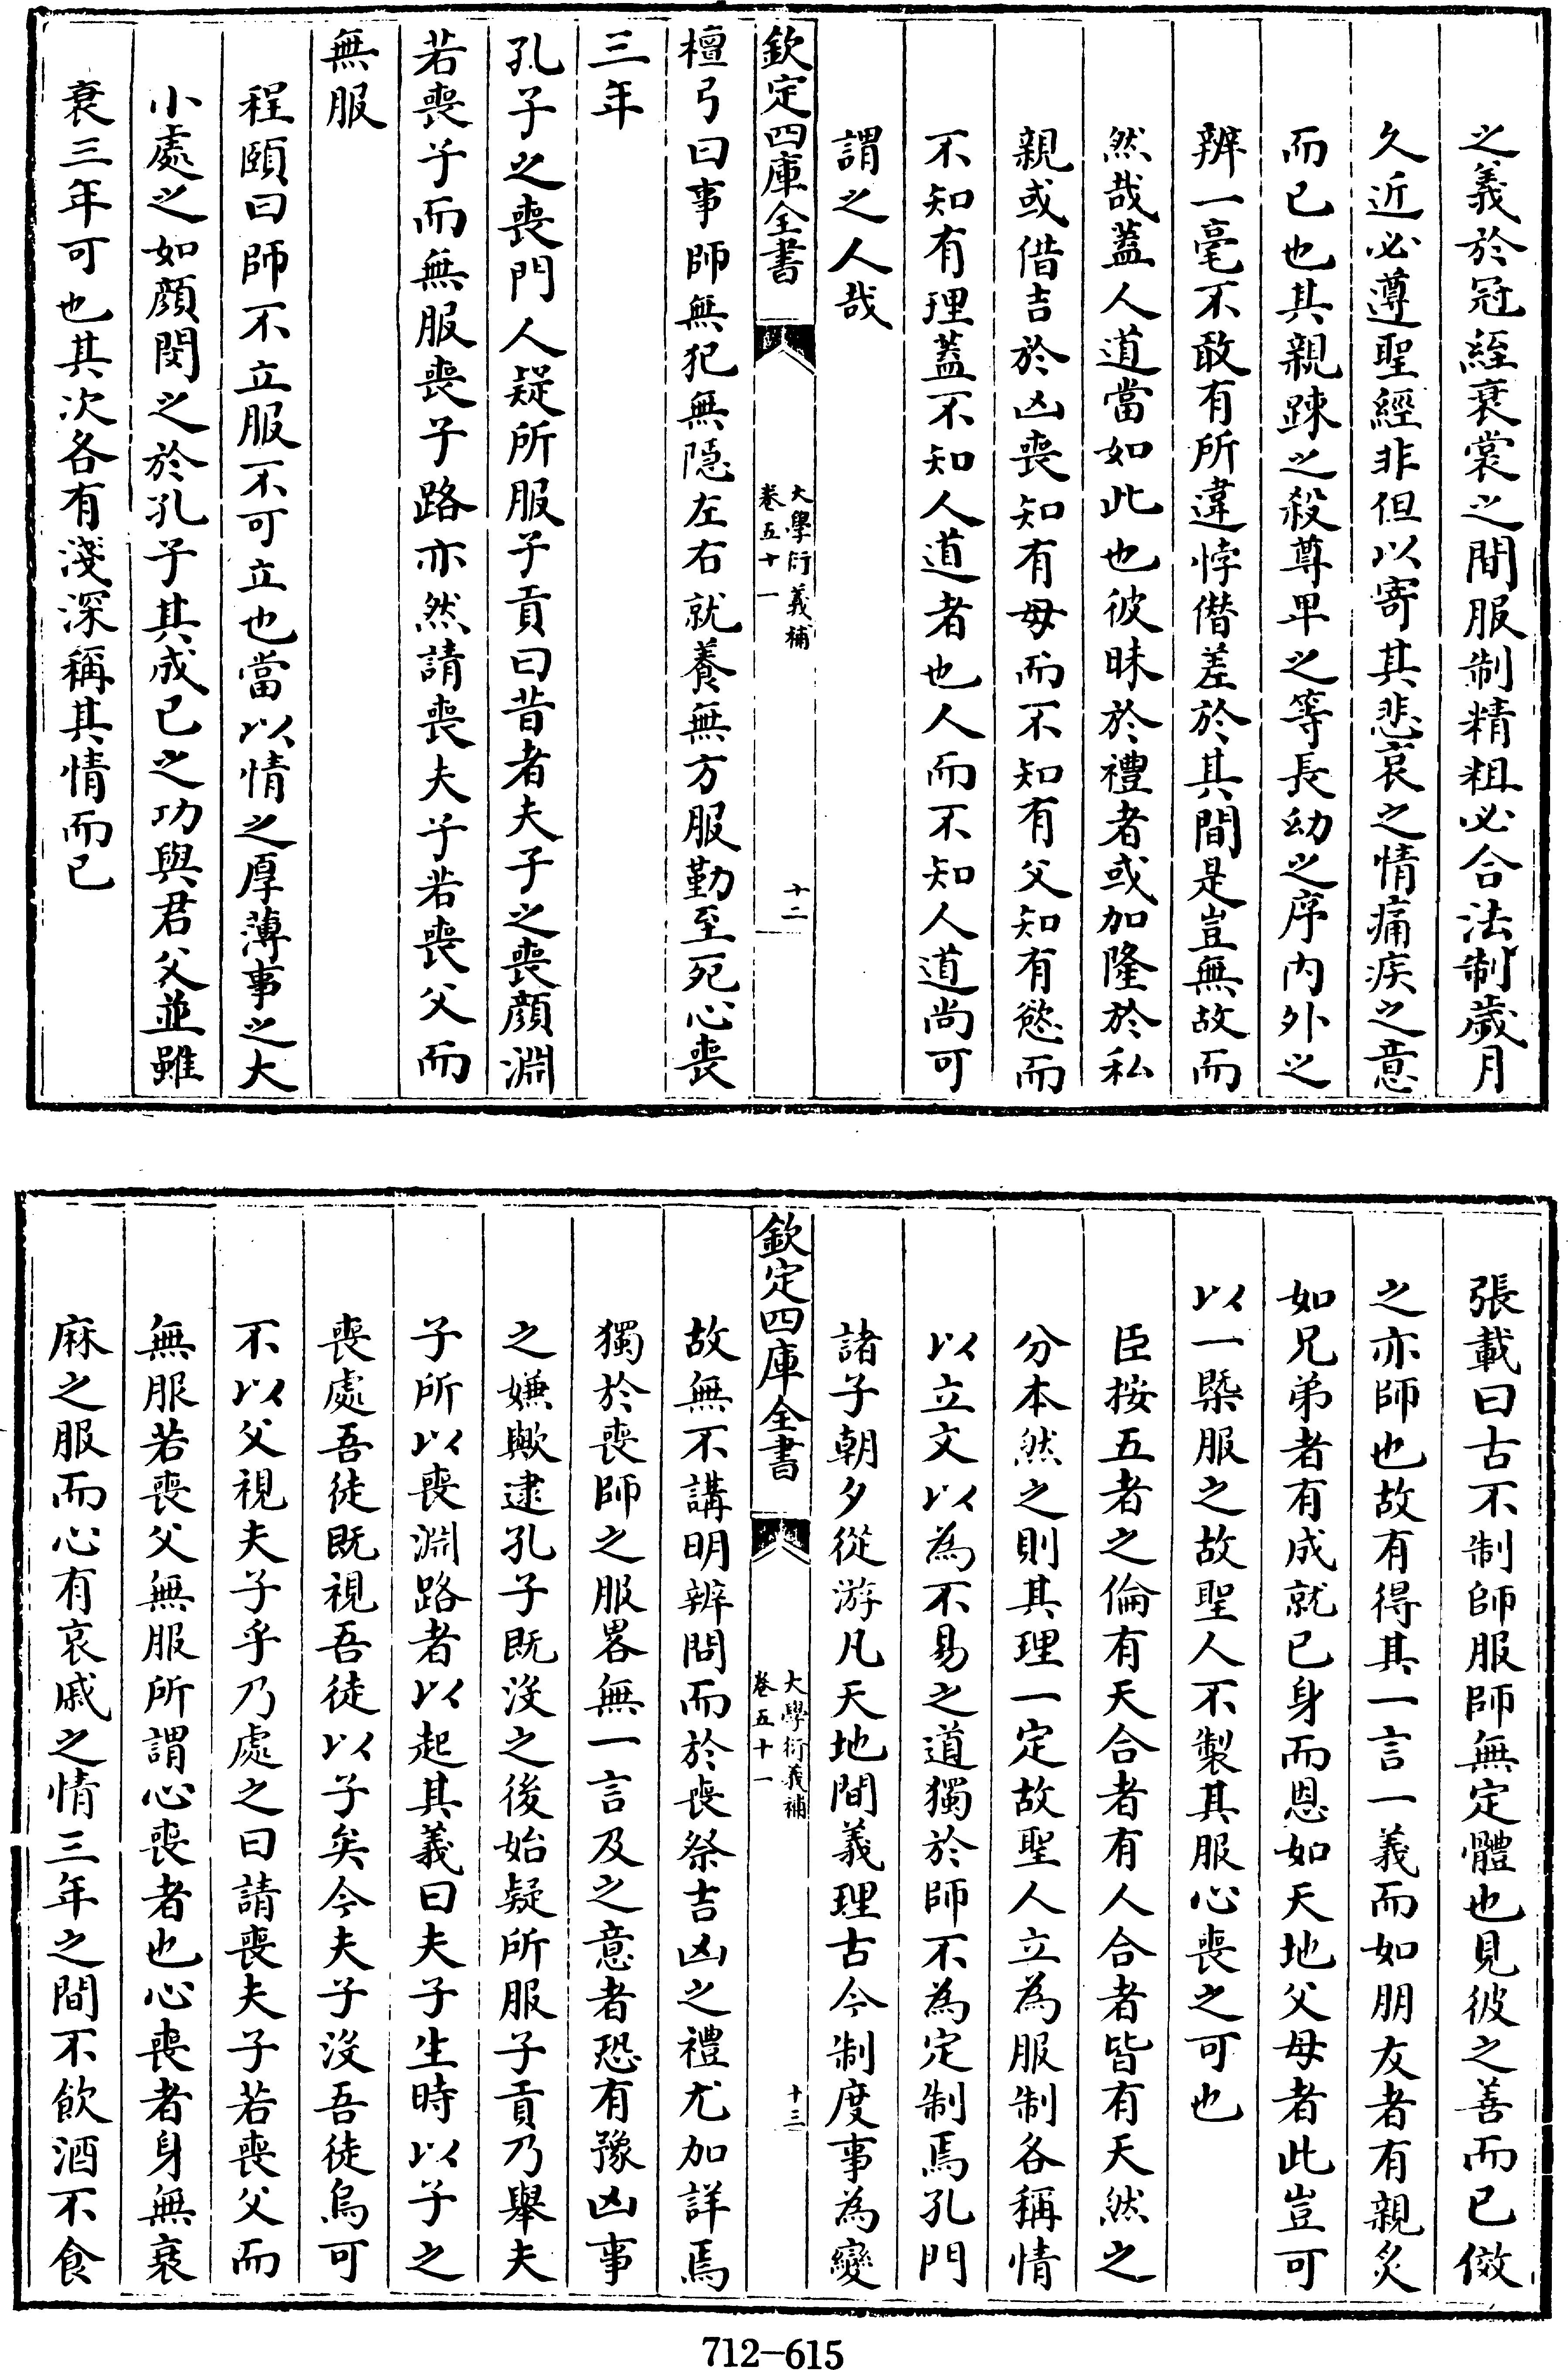 之義於冠絰衰裳之間服制精粗必合法制歲月
久近必遵聖經非但以寄其悲哀之情痛疾之意
而已也其親踈之殺尊卑之等長幼之序内外之
辨一毫不敢有所違悖僭差於其間是豈無故而
然哉蓋人道當如此也彼昧於禮者或加隆於私
親或借吉於凶喪知有母而不知有父知有慾而
不知有理蓋不知人道者也人而不知人道尚可
謂之人哉
欽定四庫全書
大學衍義補
卷五十一
十二
檀弓曰事師無犯無隱左右就養無方服勤至死心喪
三年
孔子之喪門人疑所服子貢曰昔者夫子之喪顔淵
若喪子而無服喪子路亦然請喪夫子若喪父而
無服
程頤曰師不立服不可立也當以情之厚薄事之大
小處之如顔閔之於孔子其成已之功與君父並雖
衰三年可也其次各有淺深稱其情而已
張載曰古不制師服師無定體也見彼之善而已傚
之亦師也故有得其一言一義而如朋友者有親炙
如兄弟者有成就已身而恩如天地父母者此豈可
以一槩服之故聖人不製其服心喪之可也
臣按五者之倫有天合者有人合者皆有天然之
分本然之則其理一定故聖人立為服制各稱情
以立文以為不易之道獨於師不為定制焉孔門
諸子朝夕從游凡天地間義理古今制度事為變
欽定四庫全書
大學衍義補
卷五十一
十三
故無不講明辨問而於喪祭吉凶之禮尤加詳焉
獨於喪師之服畧無一言及之意者恐有豫凶事
之嫌歟逮孔子既沒之後始疑所服子貢乃舉夫
子所以喪淵路者以起其義曰夫子生時以子之
喪處吾徒既視吾徒以子矣今夫子沒吾徒烏可
不以父視夫子乎乃處之曰請喪夫子若喪父而
無服若喪父無服所謂心喪者也心喪者身無衰
麻之服而心有哀戚之情三年之間不飲酒不食
712-615